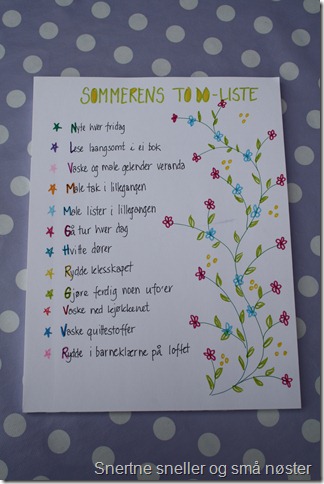 SOMMERENS TO DO-LISTE
Nyte hver fridag
Lese langsomt i ei bok
Vaske og male gelender veranda
Male tak i lillegangen
Male lister i lillegangen
Gå tur hver dag
Hvitte dører
Rydde klesskapet
Gjøre ferdig noen ufo'er
Vaske ned
Vaske quiltestoffer
Rydde i barneklærne på loftet
Snertne sneller og små nøster